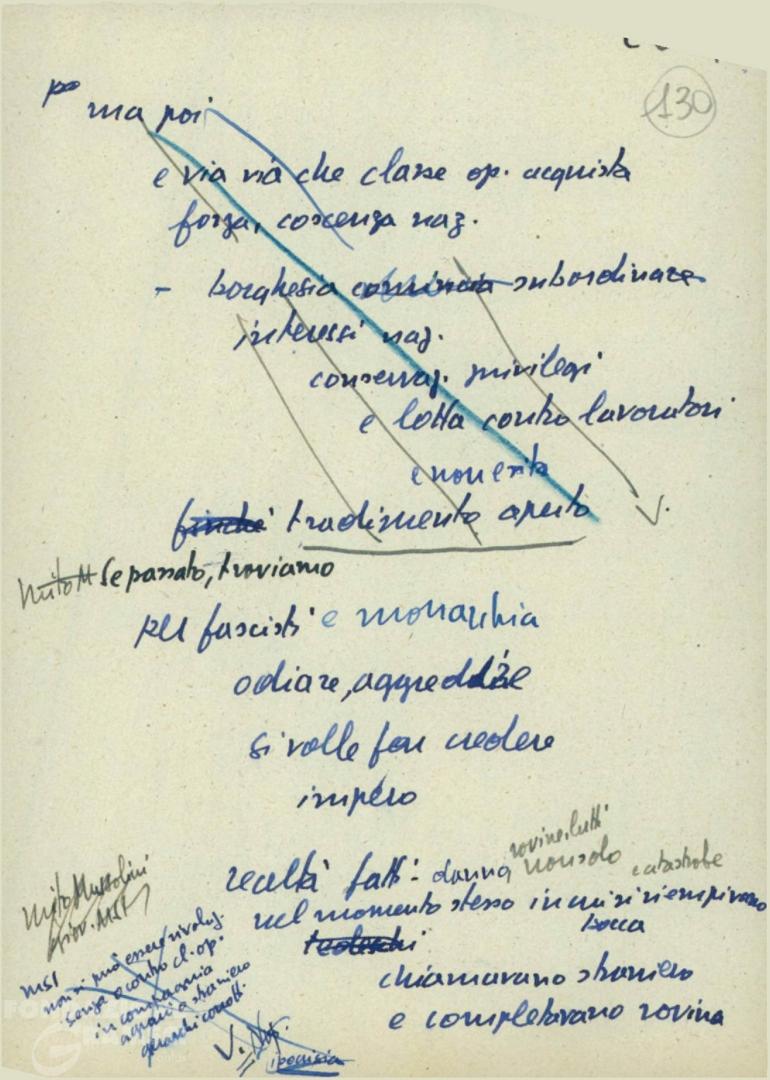 130
ma poi
e via via che classe op. acquista
forza, coscenza naz.
- borghesia comincia subordinare
interessi naz.
conservaz. privilegi
e lotta contro lavoratori
e non esita
finché tradimento aperto
V.
Se passato, troviamo
per fascisti e monarchia
odiare, aggredire
si volle far credere
impero
rovine, lutti
realtà fatti: danno non solo catastrofe
nel momento stesso in cui si riempivano
bocca
tedeschi
chiamavano straniero
e completavano rovina
Mito Mussolini
giov. MSI
MSI
non si può essere rivoluz.
senza o contro cl. op.
in compagnia
agrari o straniero
gerarchi corrotti
V.